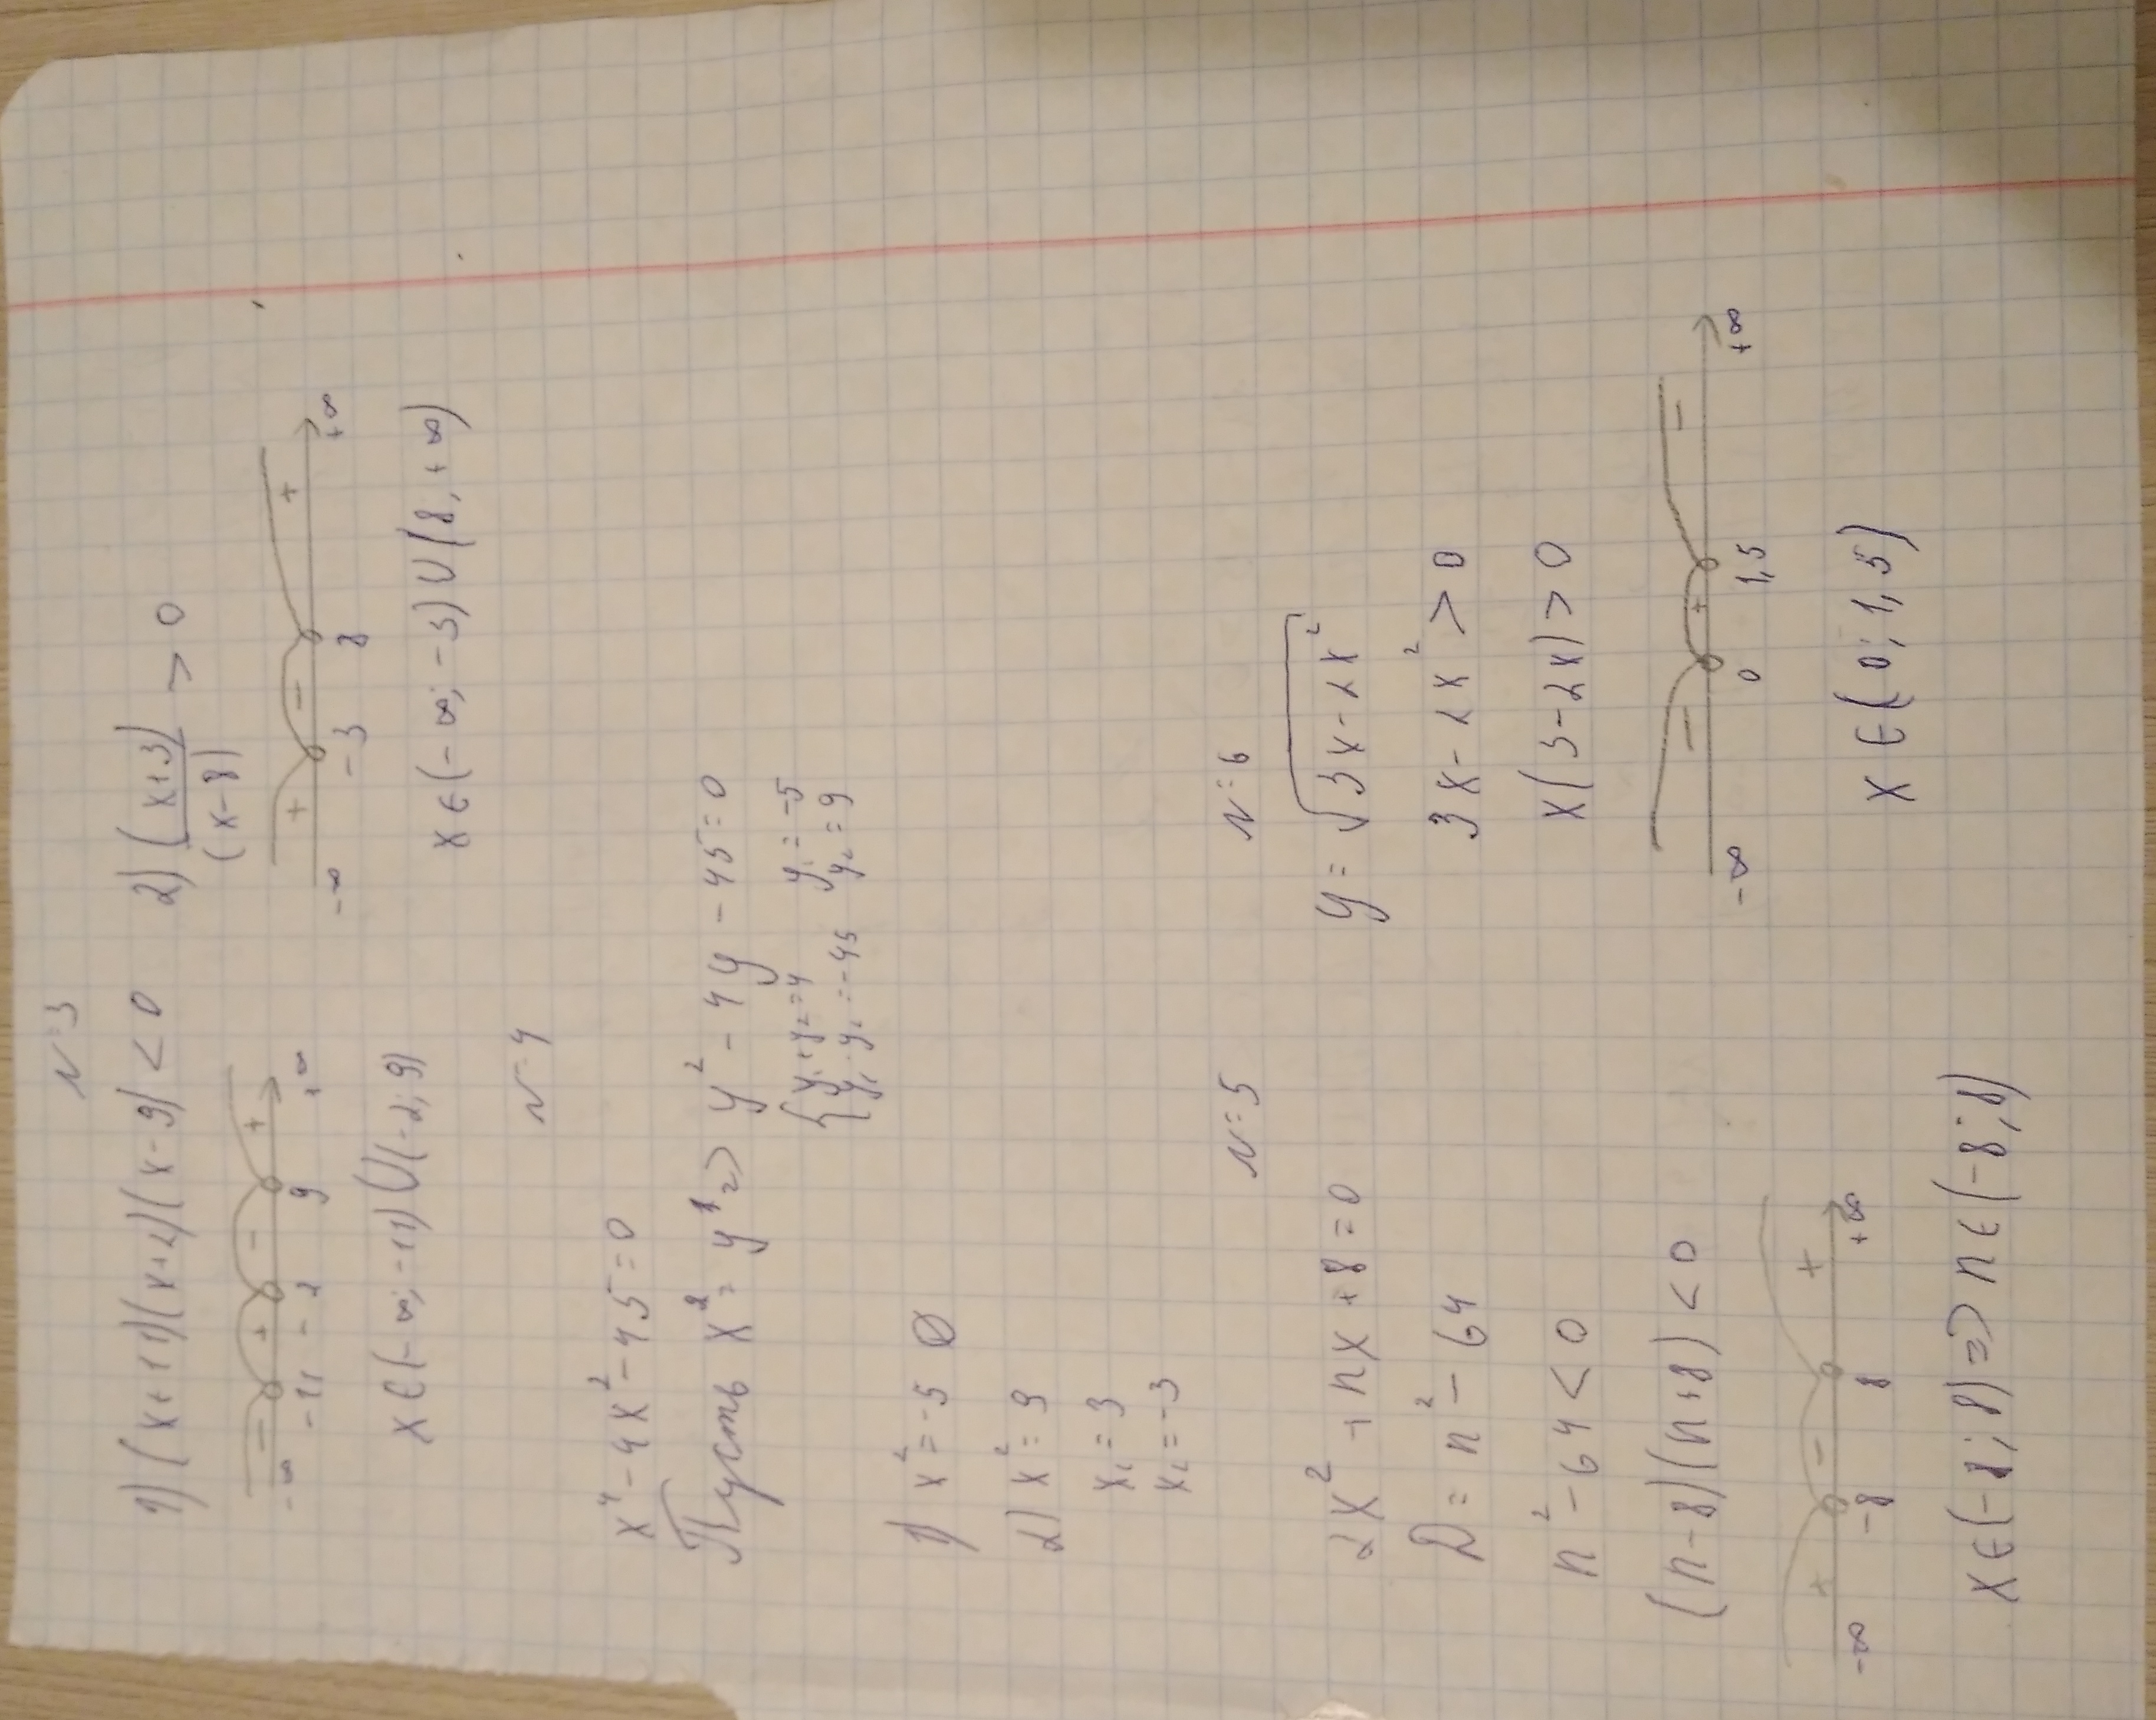 N=3
1) (x+11)(x+2)(x-9) < 0 2) (x+3)/(x-8) > 0
- + - +
-∞ -11 -2 9 +∞
+ - +
-∞ -3 8 +∞
x∈(-∞; -11)∪(-2; 9) x∈(-∞; -3)∪(8, +∞)
N=4
x⁴ - 4x² - 45 = 0
Пусть x² = y => y² - 4y - 45 = 0
{ y₁+y₂=4 y₁=-5
y₁·y₂=-45 y₂=9
1) x²=-5 ∅
2) x²=9
x₁=3
x₂=-3
N=5
2x² + nx + 8 = 0
D = n² - 64
n² - 64 < 0
(n-8)(n+8) < 0
+ - +
-∞ -8 8 +∞
x∈(-8; 8) => n∈(-8; 8)
N=6
y = √3x-2x²
3x - 2x² > 0
x(3-2x) > 0
- + -
-∞ 0 1,5 +∞
x∈(0; 1,5)